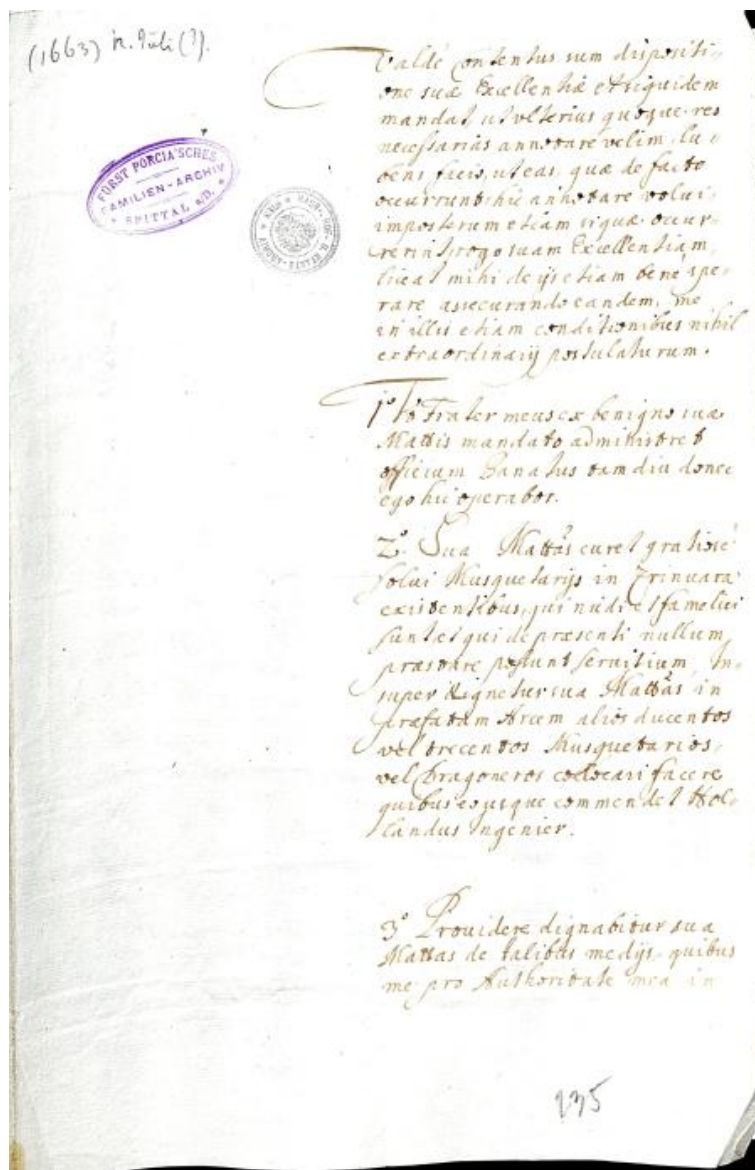 (1663) n. Juli (?).
FÜRST PORCIA'SCHES
FAMILIEN-ARCHIV
SPITTAL a/D.
Valdè contentus sum dispositi-
one suæ Excellentiæ et siquidem
mandat ut vlterius quoque res
necessarias annotare velim, lu-
bens facio, ut eas, quæ de facto
occurrunt hic annotare volui
imposterum etiam si quæ occur-
rerint, rogo suam Excellentiam,
liceat mihi de ijs etiam benè spe-
rare assecurando eandem, me
in illis etiam conditionibus nihil
extraordinarij postulaturum.
1º Frater meus ex benigno suæ
Mattis mandato administret
officium Banatus tam diu donec
ego hic operabor.
2º. Sua Mattas curet gratiosè
solui Musquetarijs in Zrinuara
existentibus, qui nudi et famelici
sunt et qui de præsenti nullum
præstare possunt seruitium, In-
super dignetur sua Mattas in
præfatam Arcem alios ducentos
vel trecentos Musquetarios
vel Dragoneros collocari facere
quibus eousque commendet Hol-
landus Ingenier.
3º Prouidere dignabitur sua
Mattas de talibus medijs, quibus
me pro Authoritate mea in
235